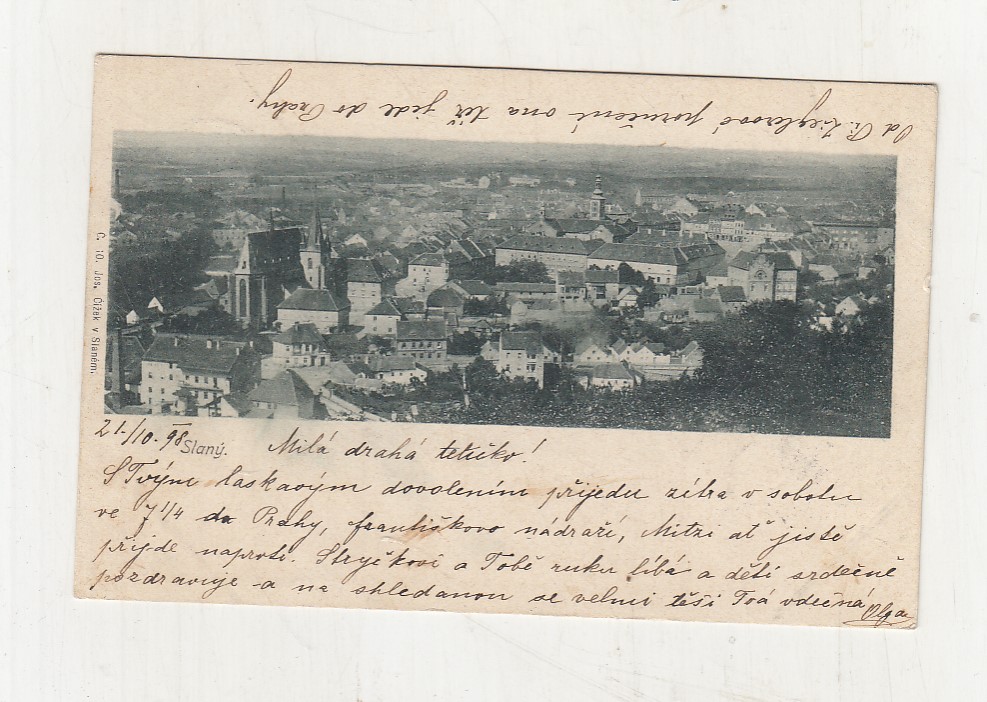 Od Pí. Zieglerové poručení ona též jede do Prahy.
C. 10. Jos. Čížek v Slaném.
21./10. 98 Slaný. Milá drahá tetičko!
S Tvým laskavým dovolením přijedu zítra v sobotu
ve 7 1/4 do Prahy, františkovo nádraží, Mitzi ať jistě
přijde naproti. Strýčkovi a Tobě ruku líbá a děti srdečně
pozdravuje a na shledanou se velmi těší Tvá vděčná
Olga